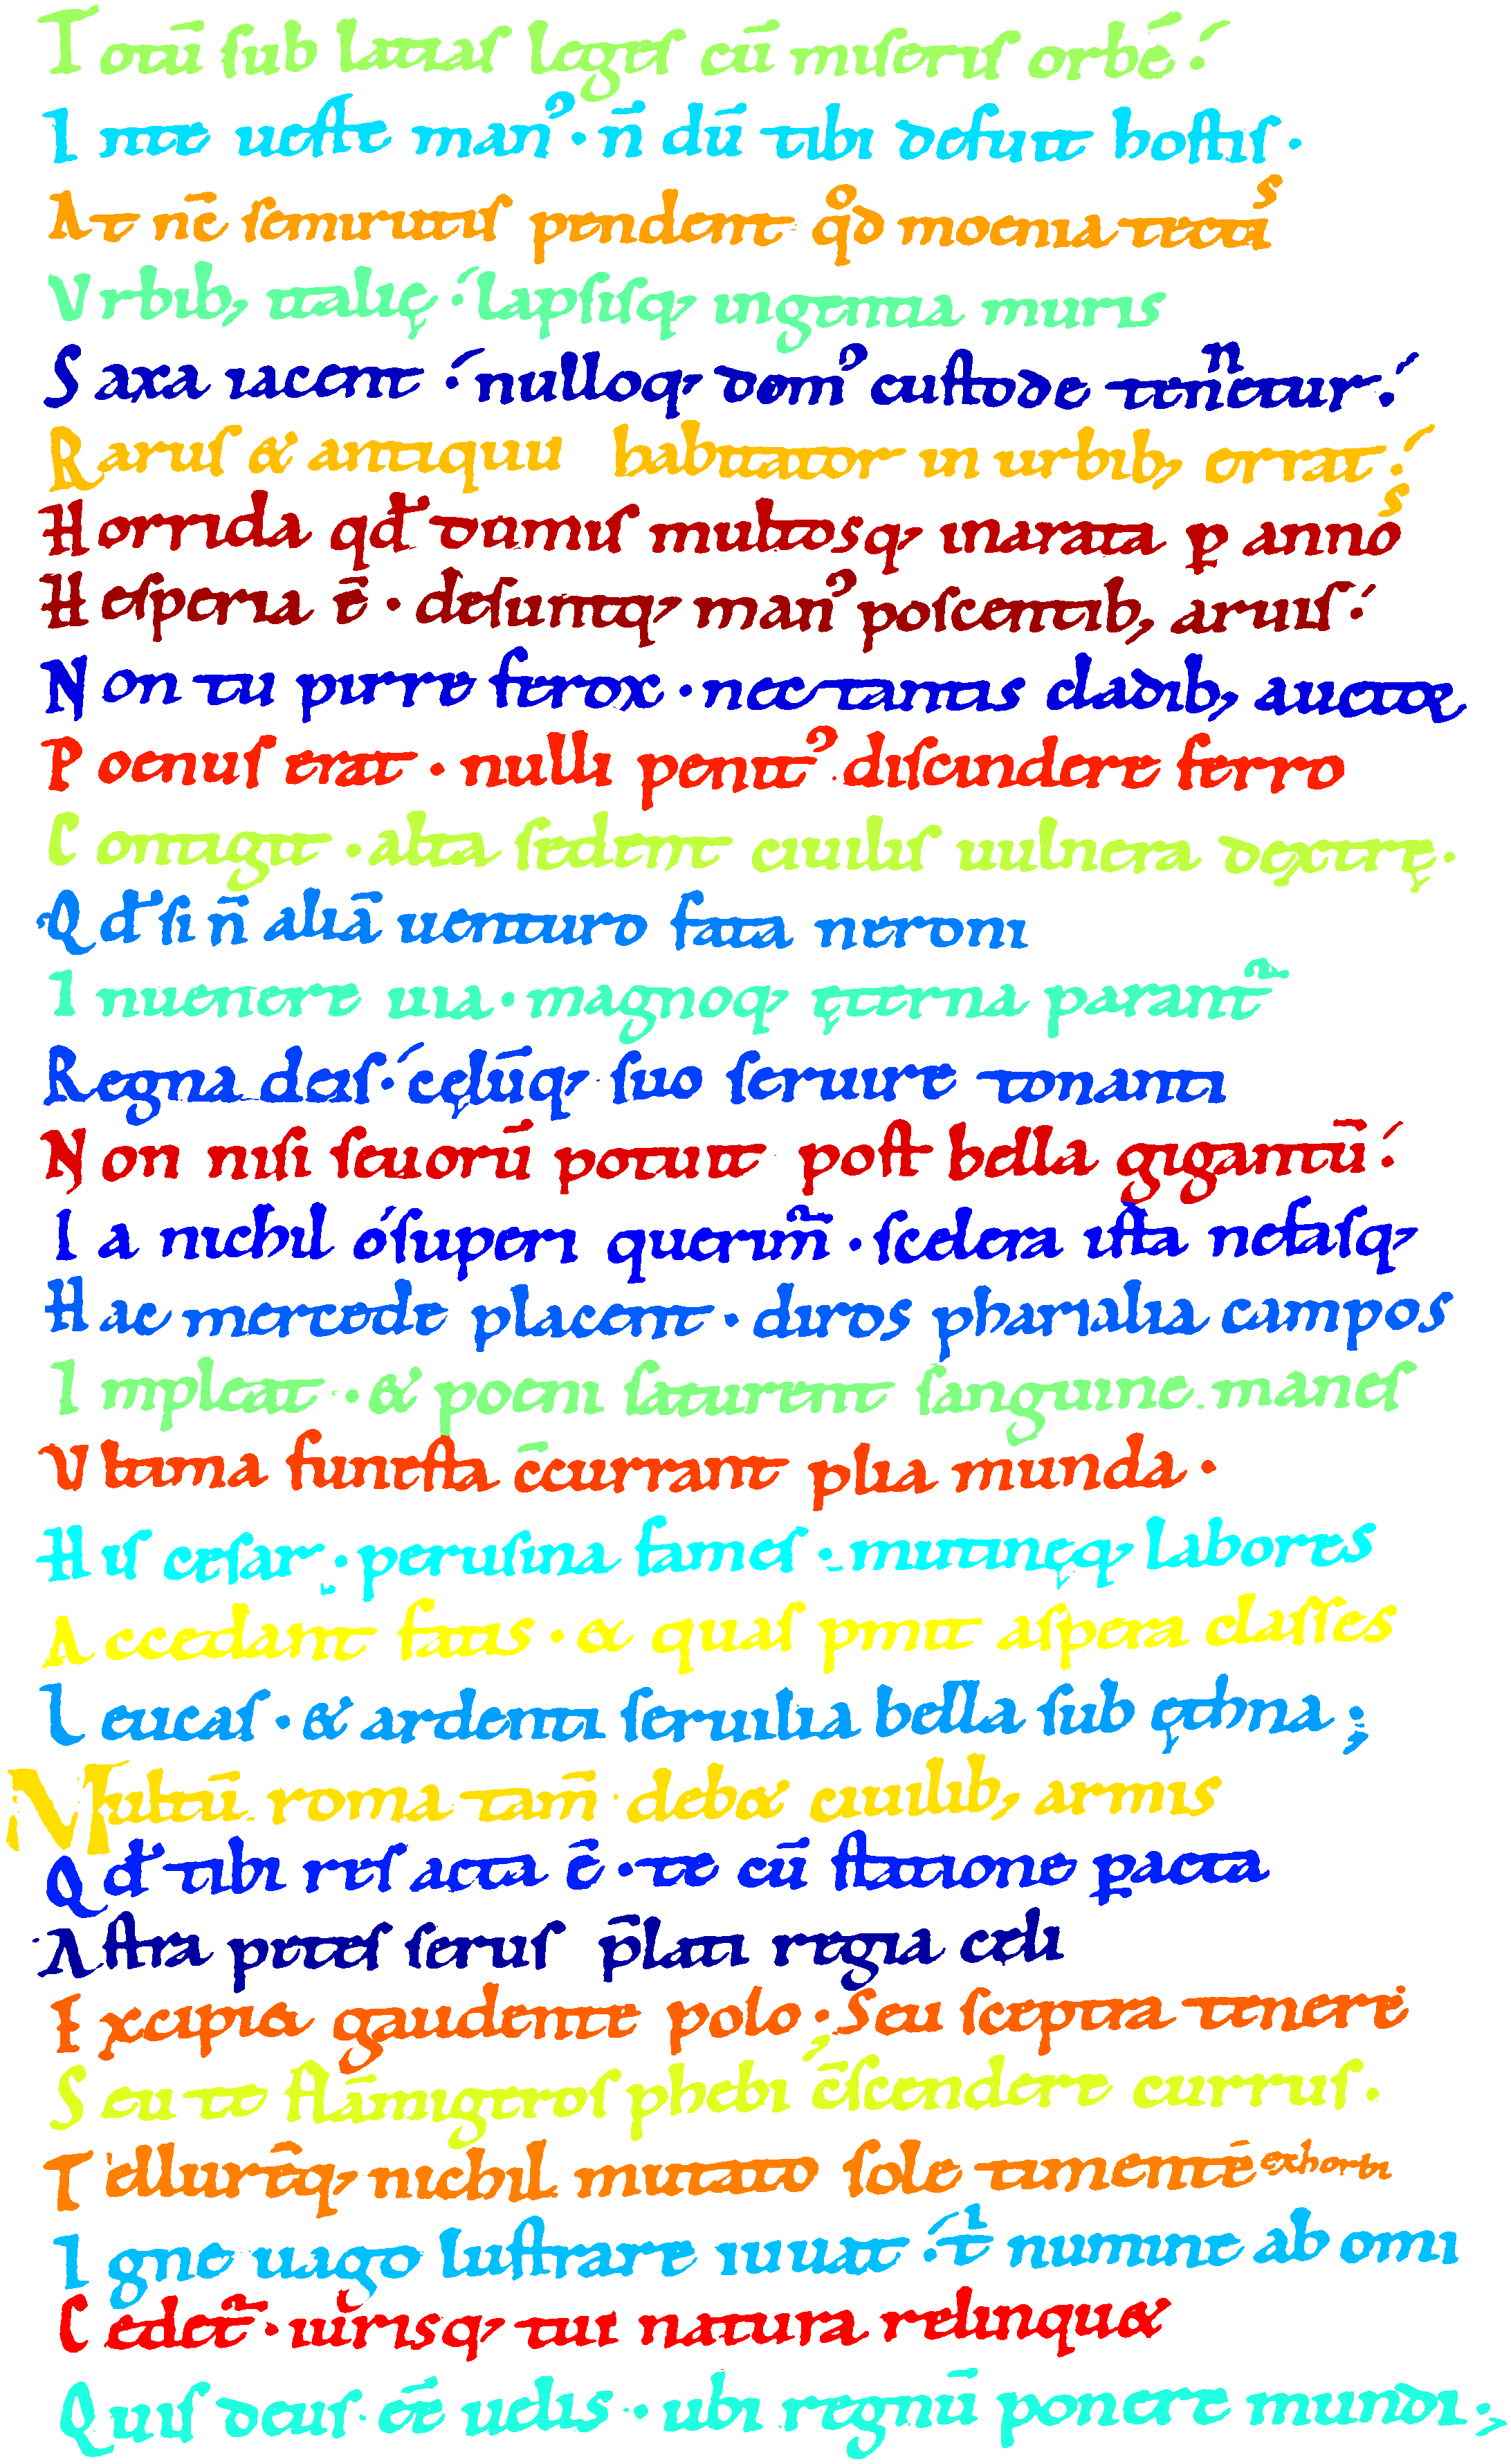 Totū sub latias leges cū miseris orbē.
In te ueste man᾽· n̄ dū tibi defuit hostis·
At nc̄ semirutis pendent qd̊ moenia tectis
Vrbib; italię: lapsisq; ingentia muris
Saxa iacent: nulloq; dom᾽ custode tenentur:
Rarus & antiquu habitator in urbib; errat:
Horrida qd̄ dumis multosq; inarata ꝑ annos
Hesperia ē· desuntq; man᾽ poscentib; aruis:
Non tu pirre ferox· nec tantis cladib; auctoꝛ
Poenus erat· nulli penit᾽ discindere ferro
Contigit· alta sedent ciuilis uulnera dextrę·
Qd̄ si n̄ aliā uenturo fata neroni
Inuenere uia· magnoq; ęterna parant᷑
Regna deis: cęlūq; suo seruire tonanti
Non nisi seuorū potuit post bella gigantū:
Ia nichil ó superi querim᷑· scelera ista nefasq;
Hac mercede placent· diros pharsalia campos
Impleat· & poeni saturent sanguine manes
Vltima funesta c̄currant plia munda·
His cesar· perusina fames· mutinęq; labores
Accedant fatis· & quas p̄mit aspera classes
Leucas· & ardenti seruilia bella sub ęthna;
Multū roma tam̄ deb& ciuilib; armis
Qd̄ tibi res acta ē· te cū statione ꝑacta
Astra petes serus p̄lati regia celi
Excipi& gaudente polo· Seu sceptra tenere
Seu te flāmigeros phebi c̄scendere currus.
Tellurēq; nichil mutato sole timentē exhorti
Igne uago lustrare iuuat: t᷑ numine ab omi
Cedet᷑· iurisq; tui natura relinqu&
Quis deus ee̅ uelis· ubi regnū ponere mundi;